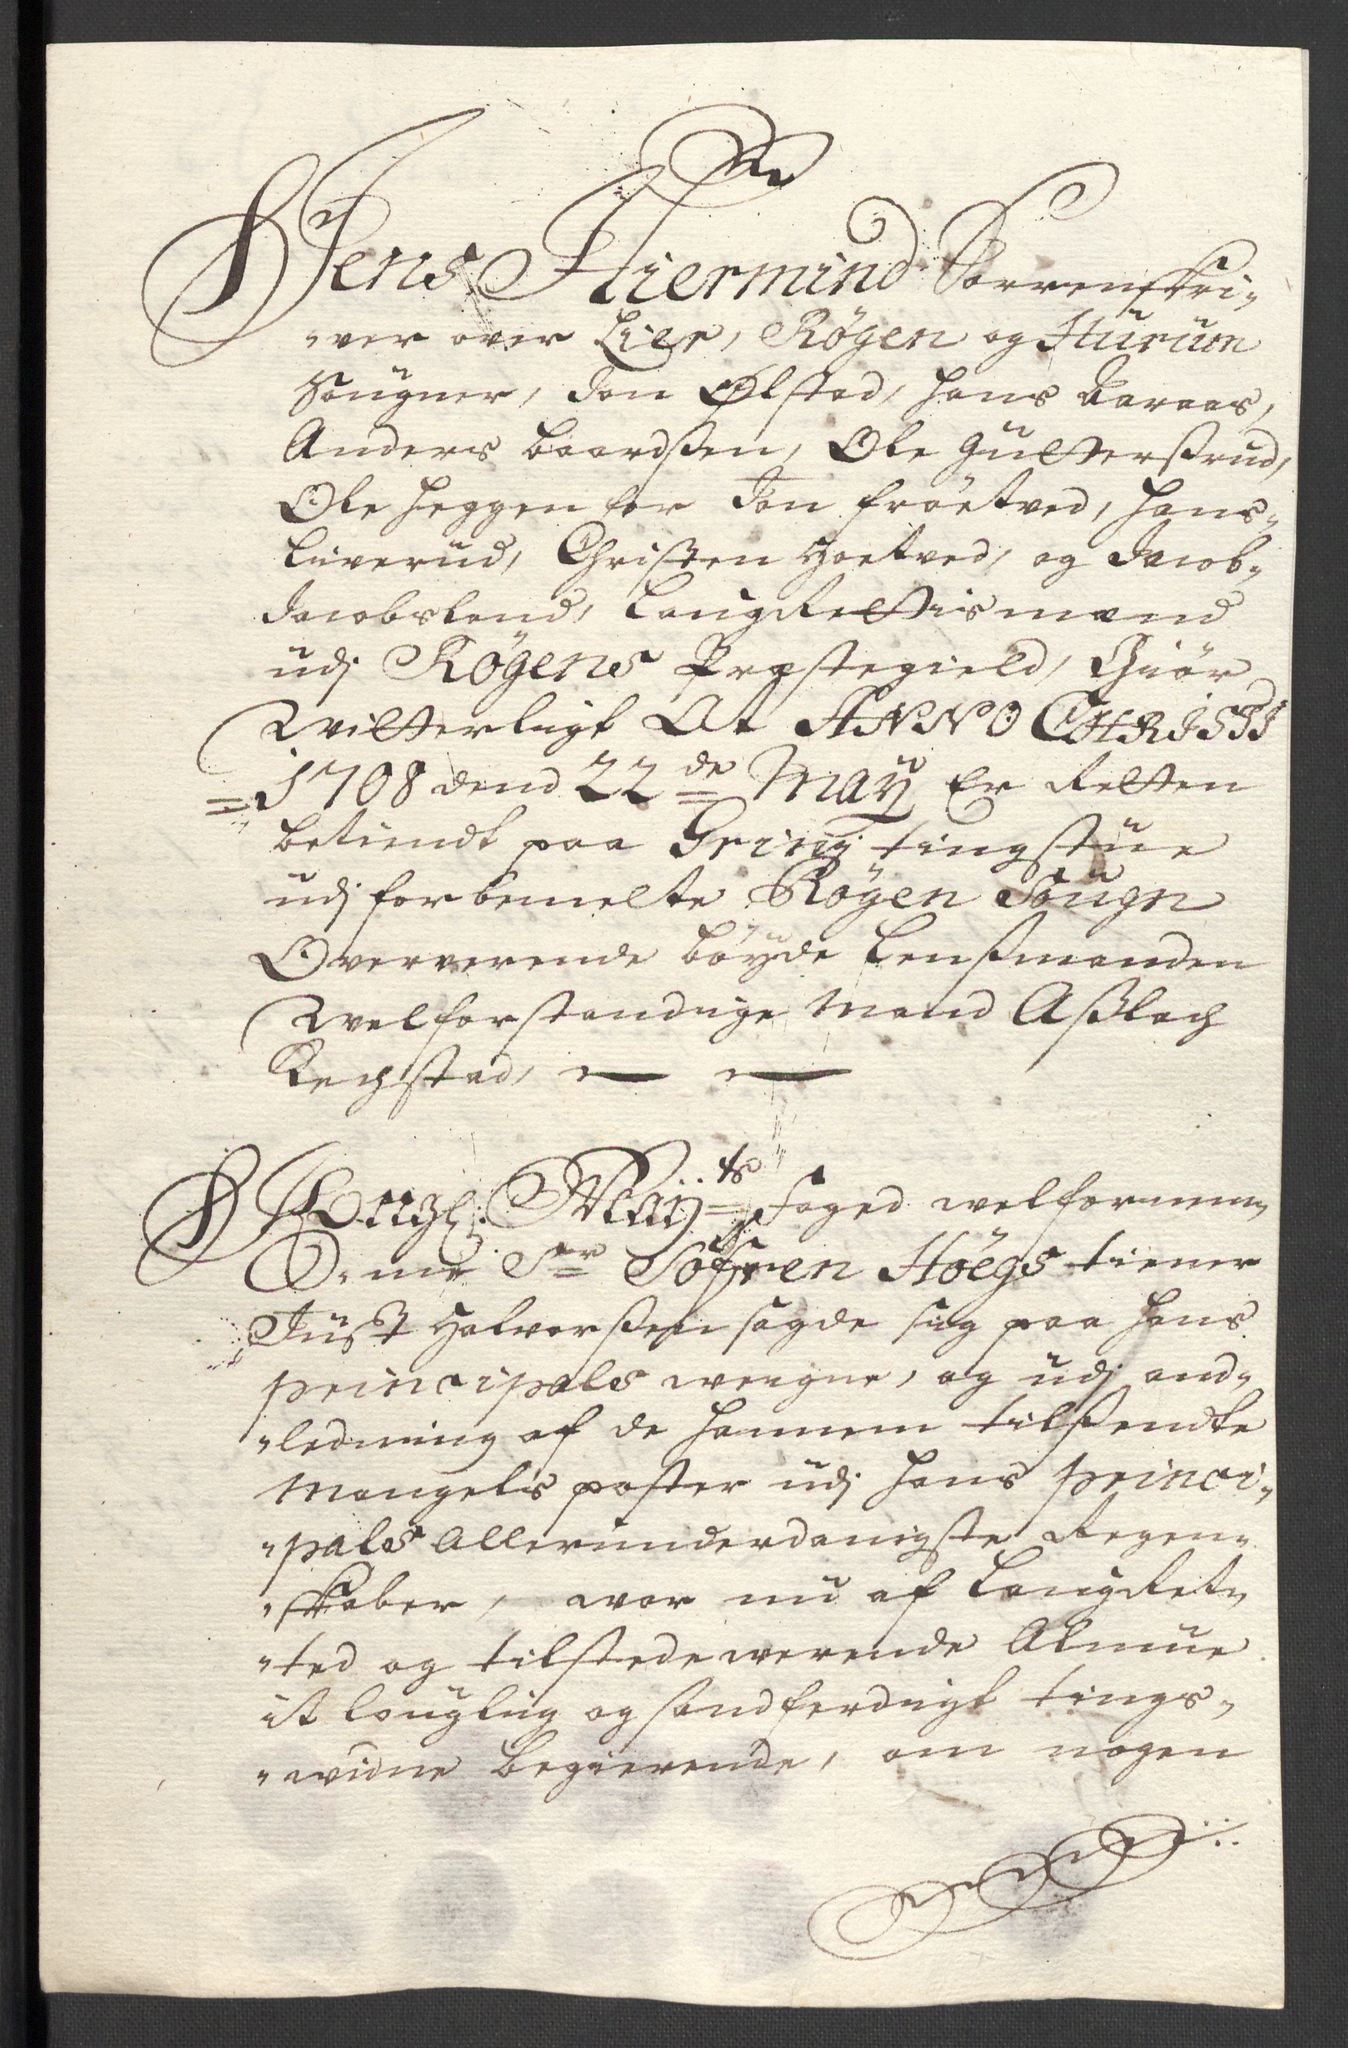 Jens Hiermind Sorrenskri-
-ver over Lier, Røgen og Hurum
Sougner, Jon Ølstad, Hans Aaraas,
Anders Baardsßen, Ole Gulterßrud,
Ole Heggen for Jon frøetved, Hans
Liverud, Christen Hoetved, og Jacob
Jacobsland, Laugrettismænd
udj Røgens Præstegield, Giør
Witterligt At ANNO CHRISTI
1708 dend 22de Maij Er Retten
betiendt paa Grinj tingstue
udj forbemelte Røgen Sougn
Overværende böyde Lensmanden
Welforstandige Mand Aßlach
Kechstad,
Kongl. Maijts Foged welfornem-
me Sr Søfren Høegs tiener
Just Halvorßen sagde sig paa hans
principals weigne, og udj and-
-ledning af de hannem tilsendte
Mangels poster udj hans princi-
-pals Allerunderdanigste Regen-
-skaber, war nu af Laugret-
-ted og tilstedewerende Almue
it louglig og sandferdigt tings-
-widne begierende, om nogen